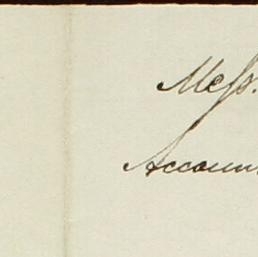 Mess.
Accoun